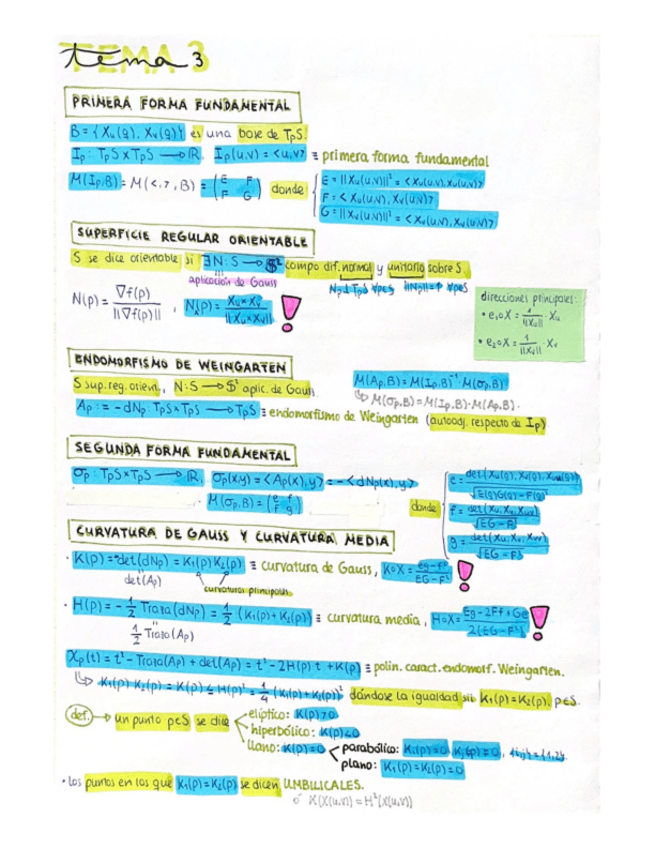 tema 3
PRIMERA FORMA FUNDAMENTAL
B = { Xu(q), Xv(q)} es una base de TpS.
Ip : TpS x TpS → R, Ip(u,v) = <u,v> ≡ primera forma fundamental
M(Ip,B) = M(<,>, B) = (E F / F G) donde
E = ||Xu(u,v)||² = <Xu(u,v), Xu(u,v)>
F = <Xu(u,v), Xv(u,v)>
G = ||Xv(u,v)||² = <Xv(u,v), Xv(u,v)>
SUPERFICIE REGULAR ORIENTABLE
S se dice orientable si ∃N: S → S² campo dif. normal y unitario sobre S.
aplicación de Gauss
Np ⊥ TpS ∀p∈S ||Np|| = 1 ∀p∈S
N(p) = ∇f(p) / ||∇f(p)|| , N(p) = Xu × Xv / ||Xu × Xv|| !
direcciones principales:
• e₁∘X = 1/||Xu|| · Xu
• e₂∘X = 1/||Xv|| · Xv
ENDOMORFISMO DE WEINGARTEN
S sup. reg. orient., N: S → S² aplic. de Gauss.
M(Ap,B) = M(Ip,B)⁻¹ · M(σp,B)
↳ M(σp,B) = M(Ip,B) · M(Ap,B).
Ap := -dNp : TpS x TpS → TpS ≡ endomorfismo de Weingarten (autoadj. respecto de Ip)
SEGUNDA FORMA FUNDAMENTAL
σp : TpS x TpS → R, σp(x,y) = <Ap(x), y> = -<dNp(x), y>
M(σp, B) = (e f / f g) donde
e = det(Xu(q), Xv(q), Xuu(q)) / √E(q)G(q) - F(q)²
f = det(Xu, Xv, Xuv) / √EG - F²
g = det(Xu, Xv, Xvv) / √EG - F²
CURVATURA DE GAUSS Y CURVATURA MEDIA
· K(p) = det(dNp) = K₁(p) K₂(p) ≡ curvatura de Gauss, K∘X = eg - f² / EG - F² !
det(Ap)
curvaturas principales
· H(p) = - 1/2 Traza(dNp) = 1/2 (K₁(p) + K₂(p)) ≡ curvatura media, H∘X = Eg - 2Ff + Ge / 2(EG - F²) !
1/2 Traza(Ap)
Xp(t) = t² - Traza(Ap) + det(Ap) = t² - 2H(p)·t + K(p) ≡ polin. caract. endomorf. Weingarten.
↳ K₁(p)·K₂(p) = K(p) ≤ H(p)² = 1/4 (K₁(p) + K₂(p))² dándose la igualdad sii K₁(p) = K₂(p), p∈S.
def. → un punto p∈S se dice
elíptico: K(p) > 0
hiperbólico: K(p) < 0
llano: K(p) = 0
parabólico: Ki(p) = 0, Kj(p) ≠ 0, i≠j = {1,2}.
plano: K₁(p) = K₂(p) = 0
• Los puntos en los que K₁(p) = K₂(p) se dicen UMBILICALES.
ó K(X(u,v)) = H²(X(u,v))